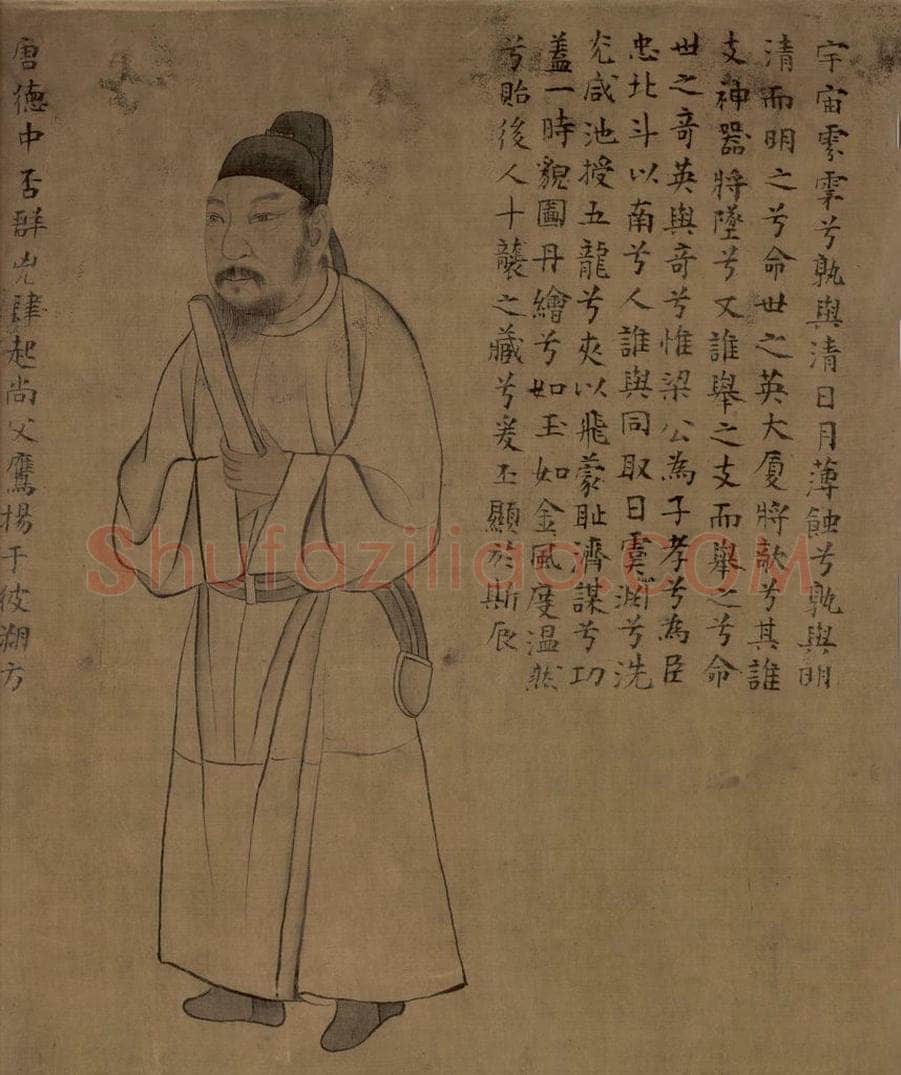 宇宙兮孰與清日月薄蝕兮孰與明
清而明之兮命世之英大厦將欹兮其誰
支神器將墜兮又誰舉之支而舉之兮命
世之奇英與奇兮惟梁公為子孝兮為臣
忠北斗以南兮人誰與同取日虞淵兮洗
光咸池授五龍兮夾以飛蒙耻濟謀兮功
蓋一時貌圖丹繪兮如玉如金風度温然
兮貽後人十襲之藏兮爰丕顯於斯辰
唐德中否群兇肆起尚父鷹揚于彼朔方
Shufaziliao.COM